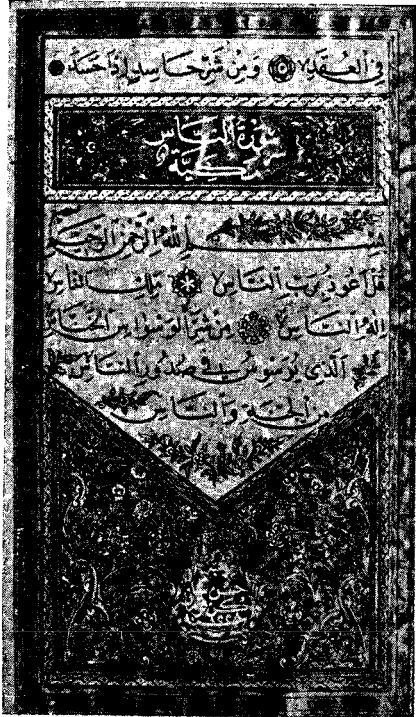 فِي الْعُقَدِ ۝ وَمِنْ شَرِّ حَاسِدٍ إِذَا حَسَدَ
سورة الناس
مكية
بسم الله الرحمن الرحيم
قُلْ أَعُوذُ بِرَبِّ النَّاسِ مَلِكِ النَّاسِ
إِلَهِ النَّاسِ مِنْ شَرِّ الْوَسْوَاسِ الْخَنَّاسِ
الَّذِي يُوَسْوِسُ فِي صُدُورِ النَّاسِ
مِنَ الْجِنَّةِ وَالنَّاسِ